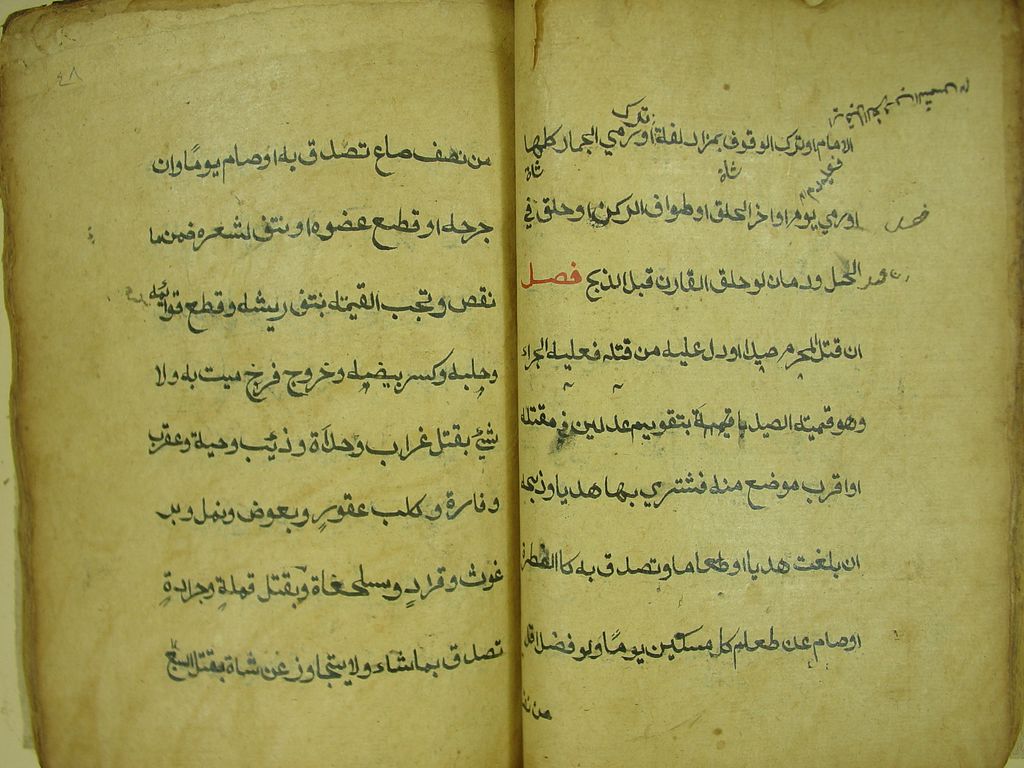 الامام او ترك الوقوف بمزدلفة او ترك رمي الجمار كلها
شاة
شاة
فعليه دم
او رمي يوم او اخر الحلق او طواف الركن او حلق في
الحل ودمان لو حلق القارن قبل الذبح فصل
ان قتل المحرم صيدا او دل عليه من قتله فعليه الجزاء
وهو قيمته الصيد بتقويم عدلين في مقتله
او اقرب موضع منه فشتري بها هديا وذبحه
ان بلغت هديا او طعاما وتصدق به كا الفطرة
او صام عن طعام كل مسكين يومًا ولو فضل اقل
من نصف
٤٨
من نصف صاع تصدق به او صام يومًا وان
جرحه او قطع عضوه او نتف لشعره ضمن ما
نقص وتجب القيمته بنتف ريشه وقطع قوائمه
وحلبه وكسر بيضه وخروج فرخ ميت به ولا
شيئ بقتل غراب وحدأة وذيب وحية وعقرب
وفارة وكلب عقورٍ وبعوض ونمل وبر
غوث وقرادٍ وسلحفاة وبقتل قملةٍ وجرادةٍ
تصدق بماشاء ولا يتجاوز عن شاة بقتل السبع